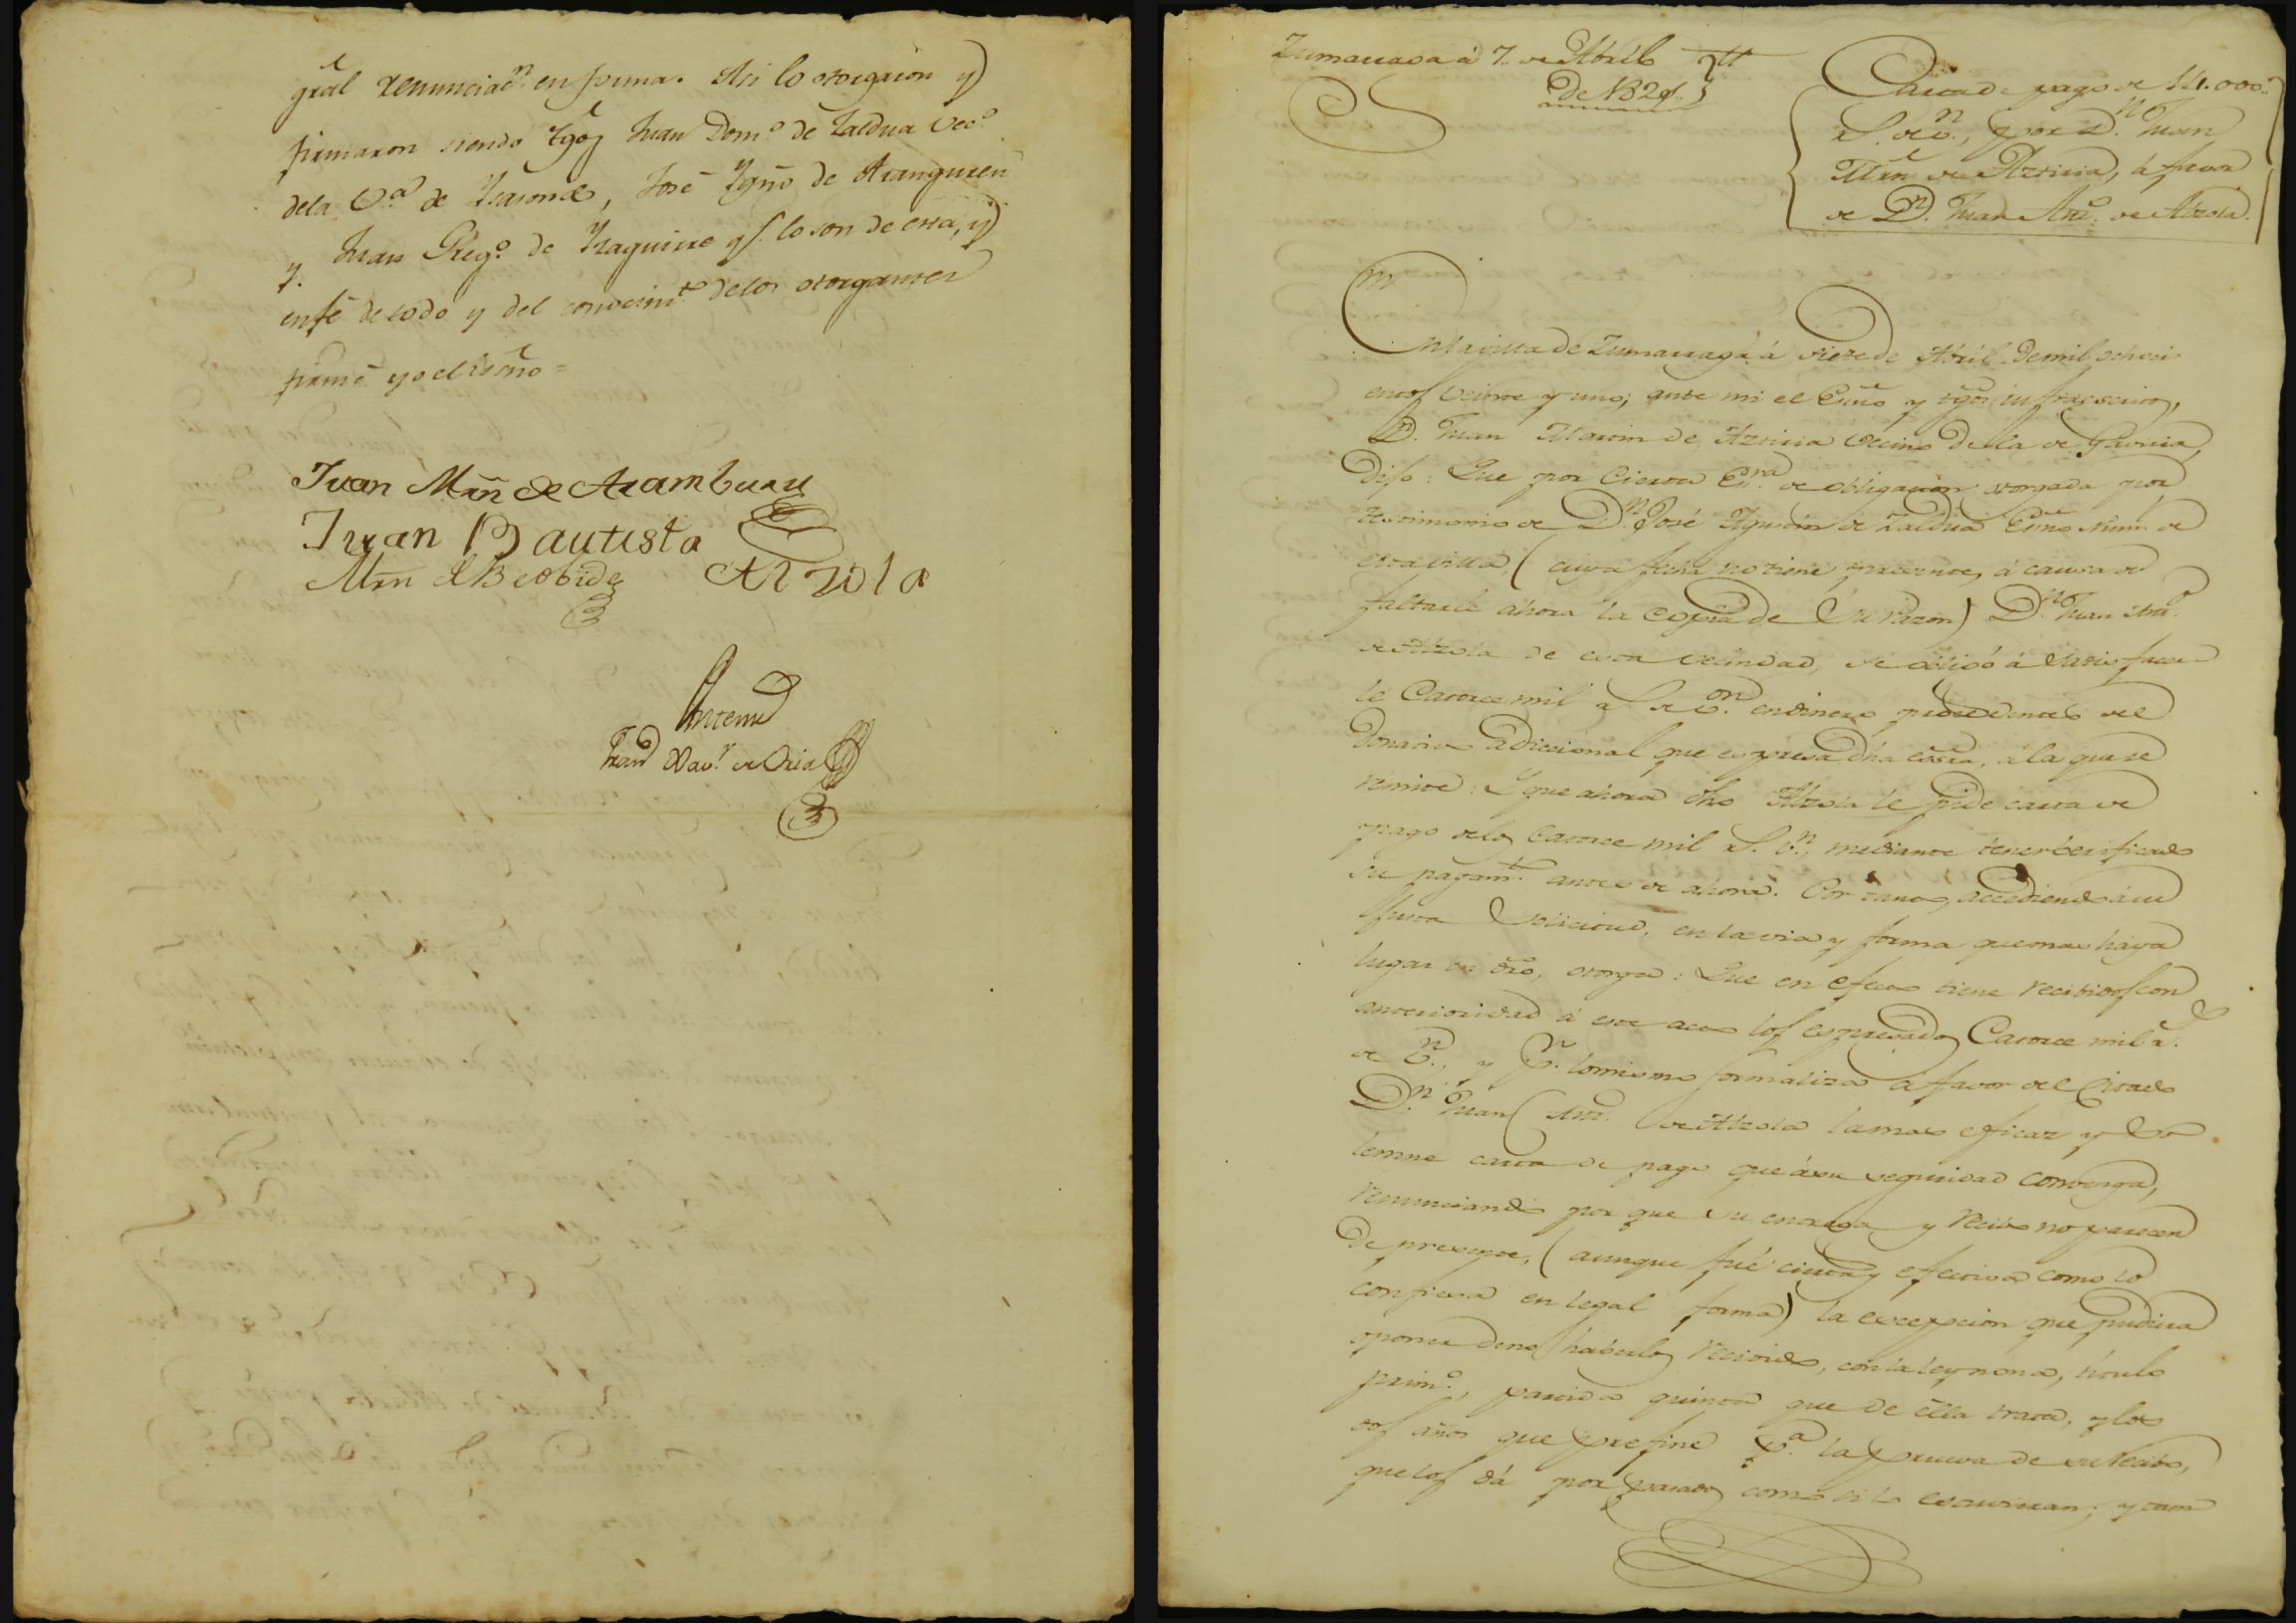 gral renunciacn en forma. Asi lo otorgaron y
firmaron siendo tgos Juan Domo de Zaldua veco
dela Va de Ychasondo, José Ygno de Aranguren
y Juan Grego de Yzaguirre qe lo son de esta, y
enfé de todo y del conocimto delos otorgantes
firmé yo el Esno =
Juan Mrn de Aramburu
Juan Bautista
Alzola
Mrn de Beobide
Antemi
Franco Xavr de Oria
Zumarraga á 7 de Abril
de 1821
Carta de pago de 14.000..
rs de vn, por Dn Juan
Mrn de Aztiria, á favor
de Dn Juan Anto de Alzola.
En la villa de Zumarraga á siete de Abril de mil ochoci
entos veinte y uno; ante mi el Esno y tgos infraescritos,
Dn Juan Martin de Aztiria vecino de la de Gaviria,
Dijo: Que por cierta Esra de obligacion otorgada por
testimonio de Dn José Agustin de Zaldua Esno Numl de
esta villa, (cuya fecha no tiene presente, á causa de
faltarle ahora la copia de su razon) Dn Juan Anto
de Alzola de esta vecindad, se obligó á satisfacer
le Catorce mil rs de von en dinero procedentes del
Donativo adiccional que espresa dha esra, á la que se
remite: Y que ahora dho Alzola le pide carta de
pago delos Catorce mil rs vn, mediante tener verificado
su pagamto antes de ahora. Por tanto, accediendo á su
justa solicitud, en la via y forma que mas haya
lugar en dro, otorga: Que en efecto tiene recibidos con
anterioridad á este acto los espresados Catorce mil rs
de vn, y pr lo mismo formaliza á favor del citado
Dn Juan Anto de Alzola la mas eficaz y so
lemne carta de pago que á su seguridad convenga,
renunciando por que su entrega y recibo no parecen
de presente, (aunque fué cierta y efectiva como lo
confiesa en legal forma) la excepcion que pudiera
oponer de no haberlos recivido, con la ley nona, titulo
primo, partida quinta que de ella trata, y los
dos años que prefine pa la prueva de su recibo,
que los dá por pasados como si lo estuvieran; y con